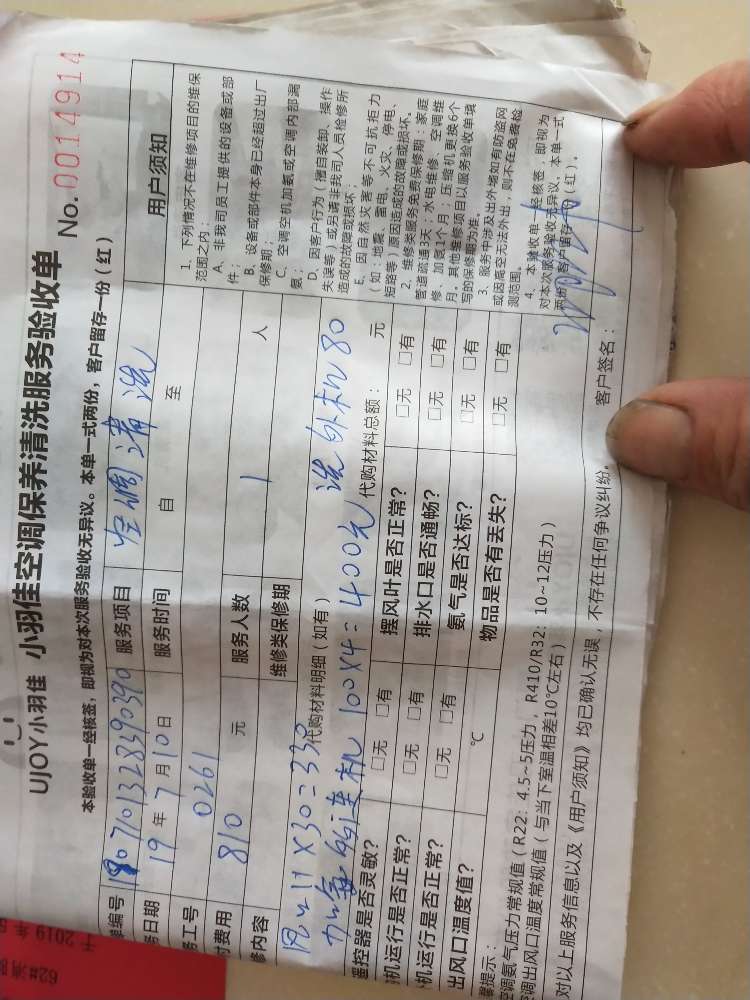 UJOY小羽佳 小羽佳空调保养清洗服务验收单
No. 0014914
本验收单一经核签，即视为对本次服务验收无异议。本单一式两份，客户留存一份（红）
单编号 180701328390390 服务项目 空调清洗
务日期 19年7月10日 服务时间 自 至
务工号 0261
付费用 810 元 服务人数 1 人
修内容 维修类保修期
风口11X30=330 洗外机80
代购材料明细（如有） 代购材料总额： 元
100X4=400元
遥控器是否灵敏？ □无 □有 摆风叶是否正常？ □无 □有
机运行是否正常？ □无 □有 排水口是否通畅？ □无 □有
机运行是否正常？ □无 □有 氨气是否达标？ □无 □有
出风口温度值？ ℃ 物品是否有丢失？ □无 □有
提示：
空调氨气压力常规值（R22：4.5~5压力，R410/R32：10~12压力）
空调出风口温度常规值（与当下室温相差10℃左右）
对以上服务信息以及《用户须知》均已确认无误，不存在任何争议纠纷。 客户签名：
用户须知
1、下列情况不在维修项目的维保
范围之内：
A、非我司员工提供的设备或部
件；
B、设备或部件本身已经超过出厂
保修期；
C、空调空机加氨或空调内部漏
氨；
D、因客户行为（擅自装卸、操作
失误等）或另请非我司人员检修所
造成的故障或损坏；
E、因自然灾害等不可抗拒力
（如：地震、雷电、火灾、停电、
短路等）原因造成的故障或损坏。
2、维修类服务免费保修期：家庭
管道疏通3天；水电维修、空调维
修、加氨1个月；压缩机更换6个
月。其他维修项目以服务验收单填
写的保修期为准。
3、服务中涉及出外墙如有防盗网
或因高空无法外出，则不在免费检
测范围。
4、本验收单一经核签，即视为
对本次服务验收无异议，本单一式
两份，客户留存一份（红）。
62#
于2019年